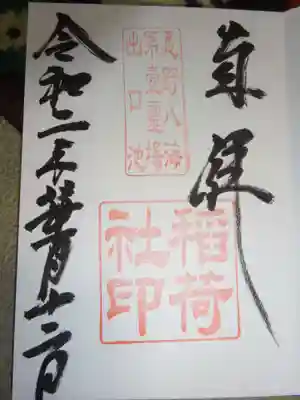 奉拝
忍野八海
第壹霊場
出口池
稲荷
社印
令和二年葉月十二日